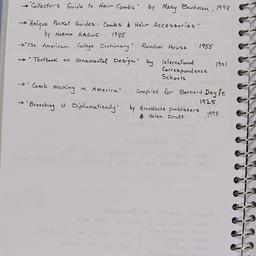 → "Collector's Guide to Hair Combs" by Mary Bachman, 1998
→ "Antique Pocket Guides: Combs & Hair Accessories"
by Norma HAGUE 1985
→ "The American College Dictionary" Random House 1955
→ "Textbook on Ornamental Design" by International 1901
Correspondence
Schools
→ "Comb making in America" compiled for Bernard Doyle
1925
→ "Brooching it Diplomatically" by Arnoldsche publishers
& Helen Drutt 1998